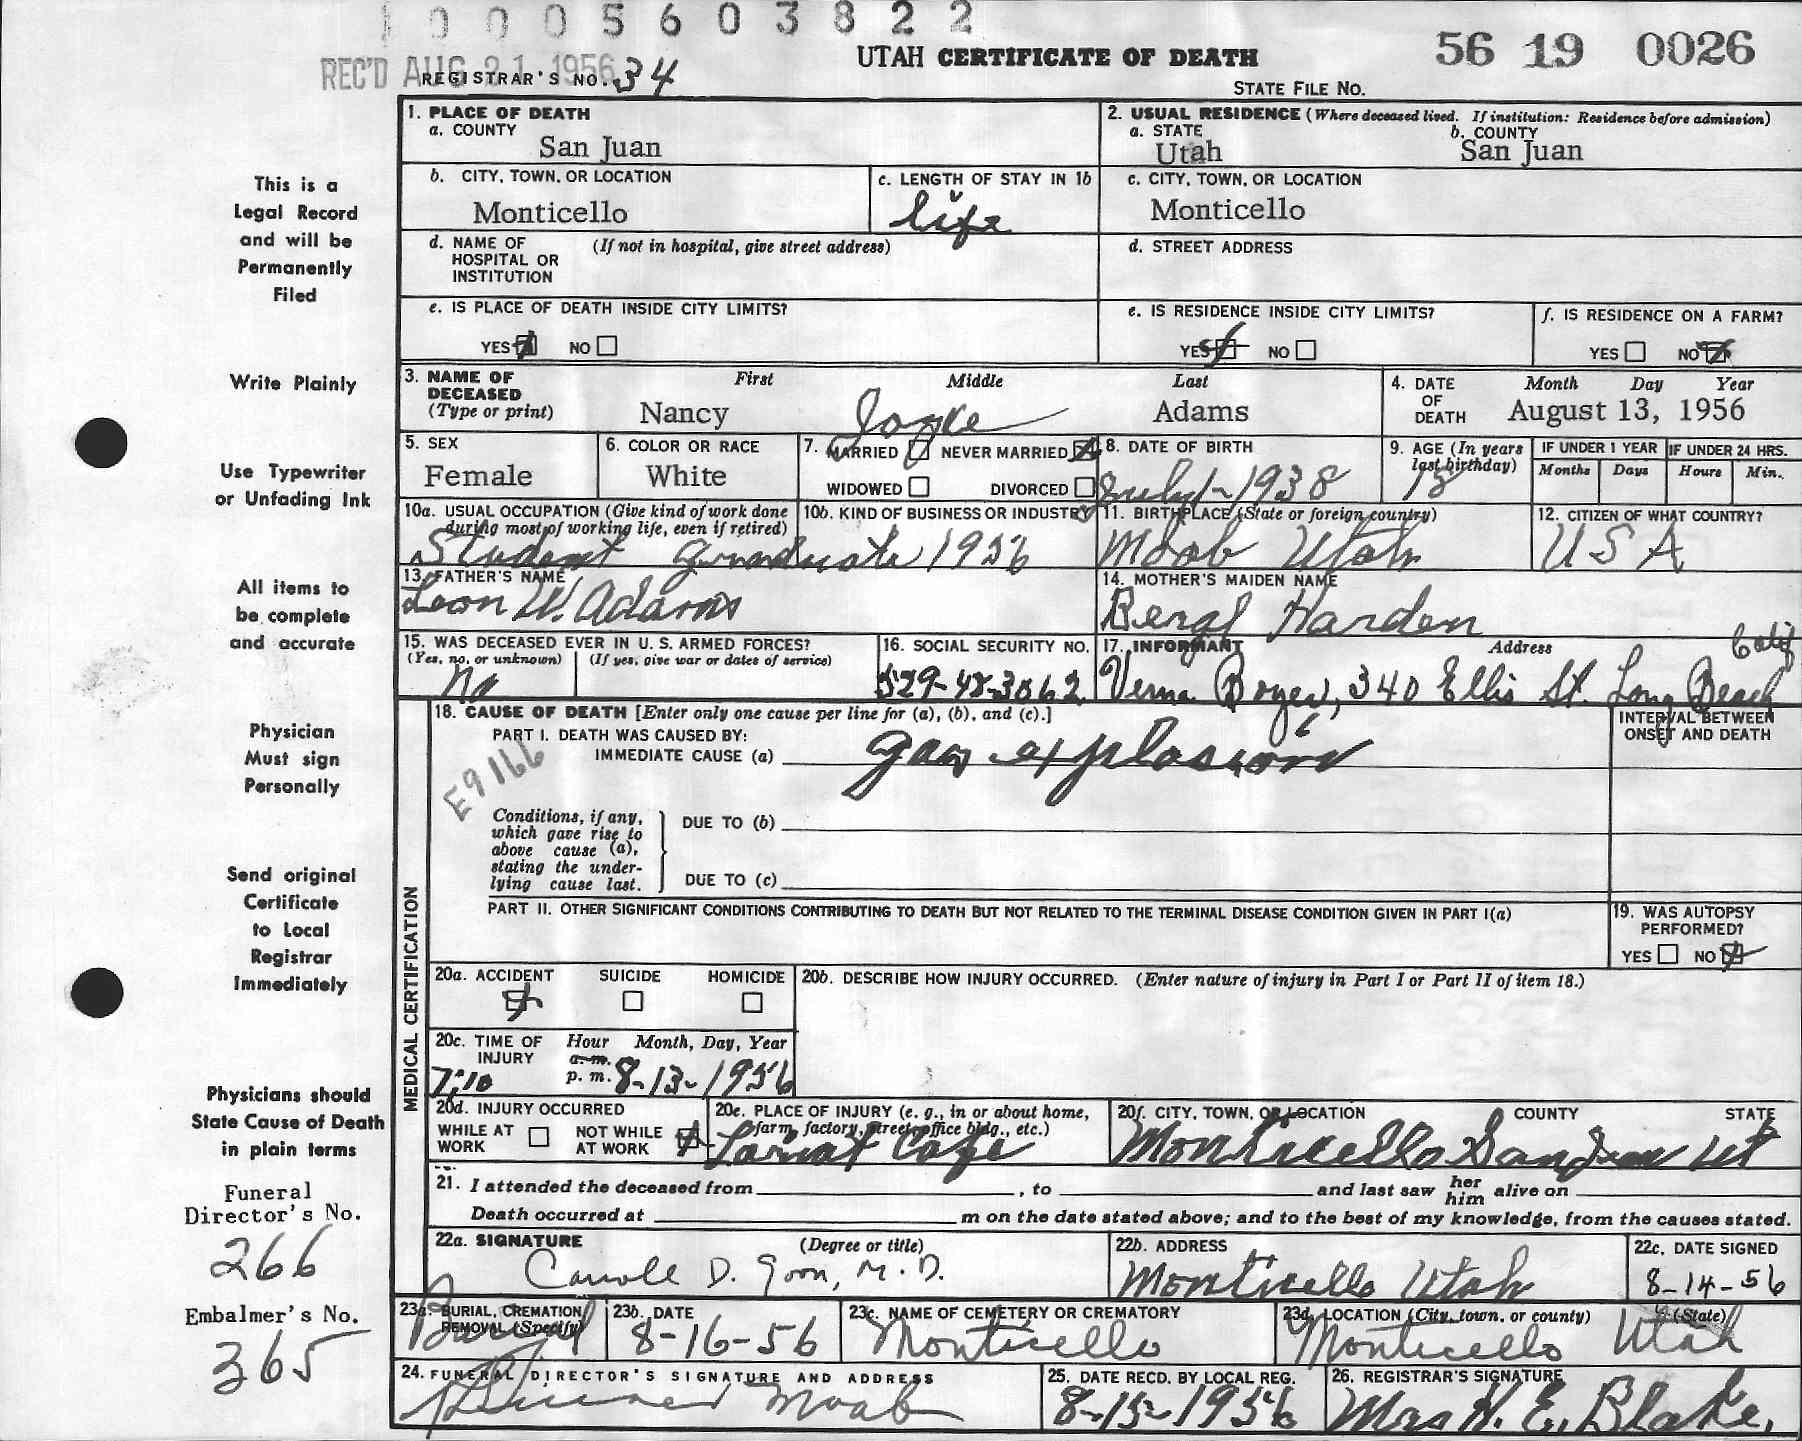 1 0 0 0 5 6 0 3 8 2 2
REC'D AUG 21 1956
REGISTRAR'S NO. 34
UTAH CERTIFICATE OF DEATH
56 19 0026
STATE FILE NO.
This is a
Legal Record
and will be
Permanently
Filed
Write Plainly
Use Typewriter
or Unfading Ink
All items to
be complete
and accurate
Physician
Must sign
Personally
Send original
Certificate
to Local
Registrar
Immediately
Physicians should
State Cause of Death
in plain terms
Funeral
Director's No.
266
Embalmer's No.
365
1. PLACE OF DEATH
a. COUNTY
San Juan
2. USUAL RESIDENCE (Where deceased lived. If institution: Residence before admission)
a. STATE b. COUNTY
Utah San Juan
b. CITY, TOWN, OR LOCATION
Monticello
c. LENGTH OF STAY IN 1b
life
c. CITY, TOWN, OR LOCATION
Monticello
d. NAME OF (If not in hospital, give street address)
HOSPITAL OR
INSTITUTION
d. STREET ADDRESS
e. IS PLACE OF DEATH INSIDE CITY LIMITS?
YES NO
e. IS RESIDENCE INSIDE CITY LIMITS?
YES NO
f. IS RESIDENCE ON A FARM?
YES NO
3. NAME OF First Middle Last
DECEASED
(Type or print) Nancy Joyce Adams
4. DATE Month Day Year
OF
DEATH August 13, 1956
5. SEX
Female
6. COLOR OR RACE
White
7. MARRIED NEVER MARRIED
WIDOWED DIVORCED
8. DATE OF BIRTH
July 1 - 1938
9. AGE (In years
last birthday)
18
IF UNDER 1 YEAR IF UNDER 24 HRS.
Months Days Hours Min.
10a. USUAL OCCUPATION (Give kind of work done
during most of working life, even if retired)
10b. KIND OF BUSINESS OR INDUSTRY
Student graduate 1956
11. BIRTHPLACE (State or foreign country)
Moab Utah
12. CITIZEN OF WHAT COUNTRY?
USA
13. FATHER'S NAME
Leon W. Adams
14. MOTHER'S MAIDEN NAME
Harden
15. WAS DECEASED EVER IN U. S. ARMED FORCES?
(Yes, no, or unknown) (If yes, give war or dates of service)
No
16. SOCIAL SECURITY NO.
529-48-3062
17. INFORMANT Address
Verna Boyer, 340 Ellis St. Long Beach Calif
18. CAUSE OF DEATH [Enter only one cause per line for (a), (b), and (c).]
INTERVAL BETWEEN
ONSET AND DEATH
PART I. DEATH WAS CAUSED BY:
IMMEDIATE CAUSE (a) gas explosion
E9166
Conditions, if any,
which gave rise to
above cause (a),
stating the under-
lying cause last.
DUE TO (b)
DUE TO (c)
PART II. OTHER SIGNIFICANT CONDITIONS CONTRIBUTING TO DEATH BUT NOT RELATED TO THE TERMINAL DISEASE CONDITION GIVEN IN PART I(a)
19. WAS AUTOPSY
PERFORMED?
YES NO
MEDICAL CERTIFICATION
20a. ACCIDENT SUICIDE HOMICIDE
20b. DESCRIBE HOW INJURY OCCURRED. (Enter nature of injury in Part I or Part II of item 18.)
20c. TIME OF Hour Month, Day, Year
INJURY a.m.
7:10 p. m. 8-13-1956
20d. INJURY OCCURRED
WHILE AT NOT WHILE
WORK AT WORK
20e. PLACE OF INJURY (e. g., in or about home,
farm, factory, street, office bldg., etc.)
Lariat Cafe
20f. CITY, TOWN, OR LOCATION COUNTY STATE
Monticello San Juan Ut
21. I attended the deceased from , to and last saw her him alive on
Death occurred at m on the date stated above; and to the best of my knowledge, from the causes stated.
22a. SIGNATURE (Degree or title)
D. Goon, M.D.
22b. ADDRESS
Monticello Utah
22c. DATE SIGNED
8-14-56
23a. BURIAL, CREMATION,
REMOVAL (Specify)
Burial
23b. DATE
8-16-56
23c. NAME OF CEMETERY OR CREMATORY
Monticello
23d. LOCATION (City, town, or county) (State)
Monticello Utah
24. FUNERAL DIRECTOR'S SIGNATURE AND ADDRESS
Moab
25. DATE RECD. BY LOCAL REG.
8-15-1956
26. REGISTRAR'S SIGNATURE
Mrs H. E. Blake,